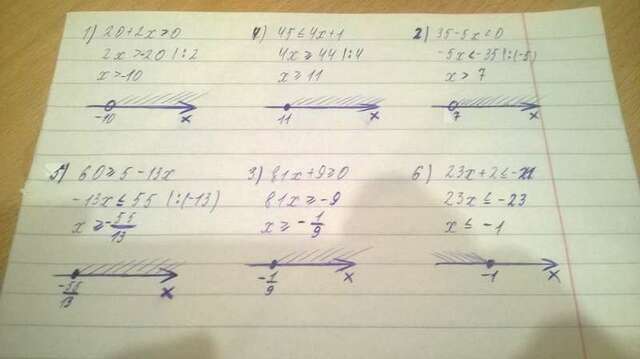 1) 20+2x>0
2x>-20 |:2
x>-10
-10 x
4) 45≤4x+1
4x≥44 |:4
x≥11
11 x
2) 35-5x<0
-5x<-35 |:(-5)
x>7
7 x
5) 60≥5-13x
-13x≤55 |:(-13)
x≥-55/13
-55/13 x
3) 81x+9≥0
81x≥-9
x≥-1/9
-1/9 x
6) 23x+2≤-21
23x≤-23
x≤-1
-1 x